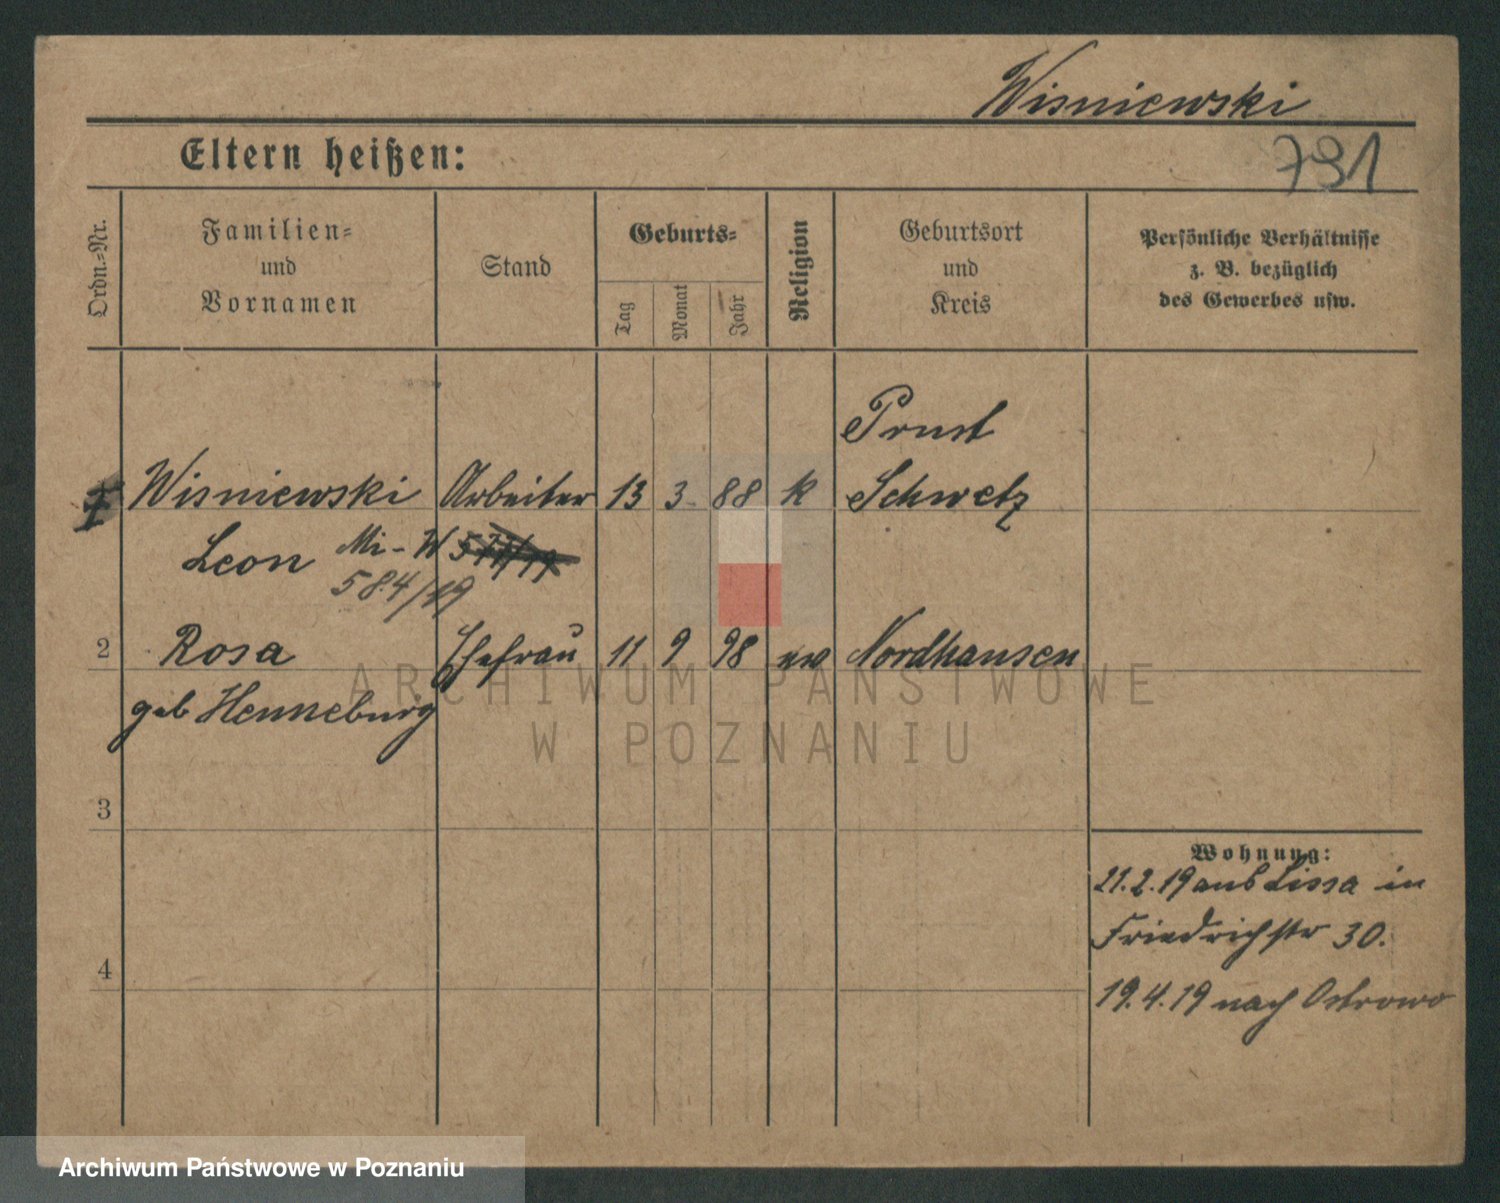 Wisniewski
Eltern heißen:
791
Ordn.=Nr.
Familien=
und
Vornamen
Stand
Geburts=
Tag
Monat
Jahr
Religion
Geburtsort
und
Kreis
Persönliche Verhältnisse
z. B. bezüglich
des Gewerbes usw.
Prust
1 Wisniewski Arbeiter 13 3 88 k Schwetz
Leon Mi-W
584/19
2 Rosa Ehefrau 11 9 98 ev Nordhausen
geb Henneburg
3
4
Wohnung:
21.2.19 aus Lissa in
Friedrichstr 30.
19.4.19 nach Ostrowo
ARCHIWUM PAŃSTWOWE
W POZNANIU
Archiwum Państwowe w Poznaniu